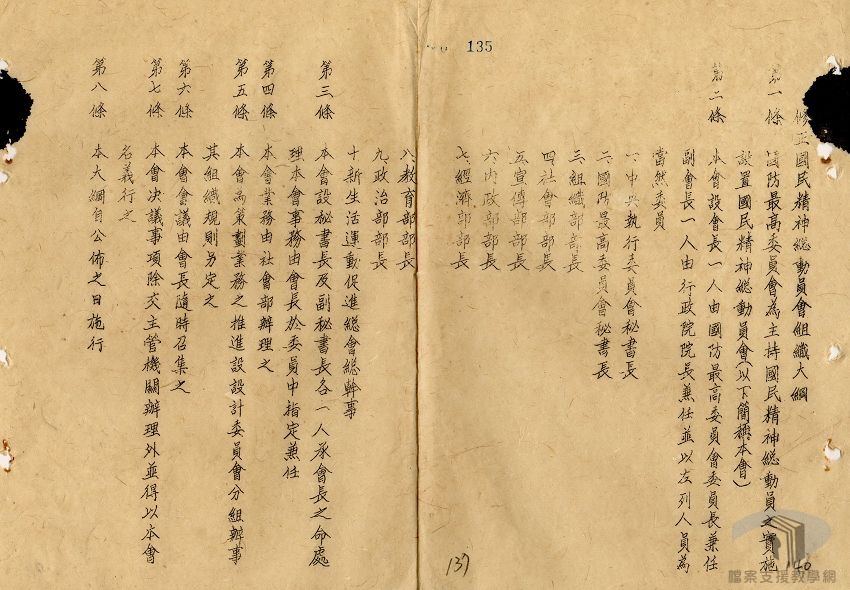 135
修正國民精神総動員會組織大綱
第一條 國防最高委員會為主持國民精神総動員之實施
設置國民精神総動員會(以下簡稱本會)
第二條 本會設會長一人由國防最高委員會委員長兼任
副會長一人由行政院院長兼任並以左列人員為
當然委員
一、中央執行委員會秘書長
二、國防最高委員會秘書長
三、組織部部長
四、社會部部長
五、宣傳部部長
六、內政部部長
七、經濟部部長
八、教育部部長
九、政治部部長
十、新生活運動促進総會総幹事
第三條 本會設秘書長及副秘書長各一人承會長之命處
理本會事務由會長於委員中指定兼任
第四條 本會業務由社會部辦理之
第五條 本會為策劃業務之推進設設計委員會分組辦事
其組織規則另定之
第六條 本會會議由會長隨時召集之
第七條 本會决議事項除交主管機關辦理外並得以本會
名義行之
第八條 本大綱自公佈之日施行
137
140
檔案支援教學網